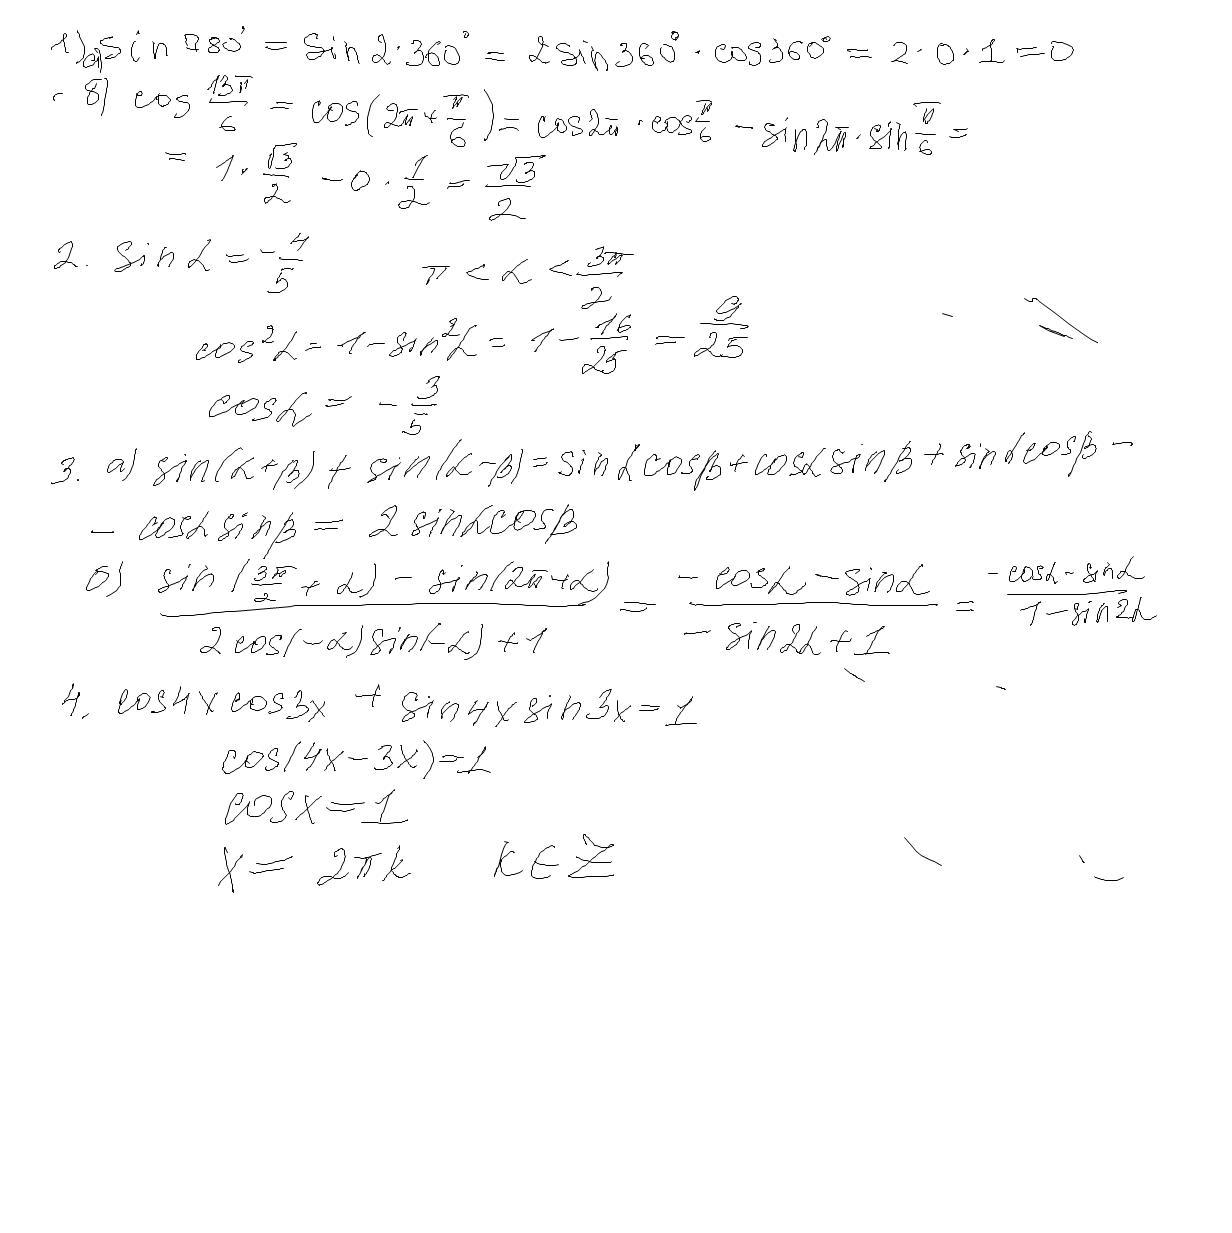 1) а) sin 780° = sin 2·360° = 2 sin 360° · cos 360° = 2·0·1 = 0
б) cos 13π/6 = cos(2π + π/6) = cos 2π · cos π/6 − sin 2π · sin π/6 =
= 1 · √3/2 − 0 · 1/2 = √3/2
2. sin α = −4/5 π < α < 3π/2
cos²α = 1 − sin²α = 1 − 16/25 = 9/25
cos α = −3/5
3. а) sin(α+β) + sin(α−β) = sin α cos β + cos α sin β + sin α cos β −
− cos α sin β = 2 sin α cos β
б) (sin(3π/2 + α) − sin(2π+α))/(2 cos(−α) sin(−α) + 1) = (−cos α − sin α)/(−sin 2α + 1) = (−cos α − sin α)/(1 − sin 2α)
4. cos 4x cos 3x + sin 4x sin 3x = 1
cos(4x − 3x) = 1
cos x = 1
x = 2πk k ∈ Z